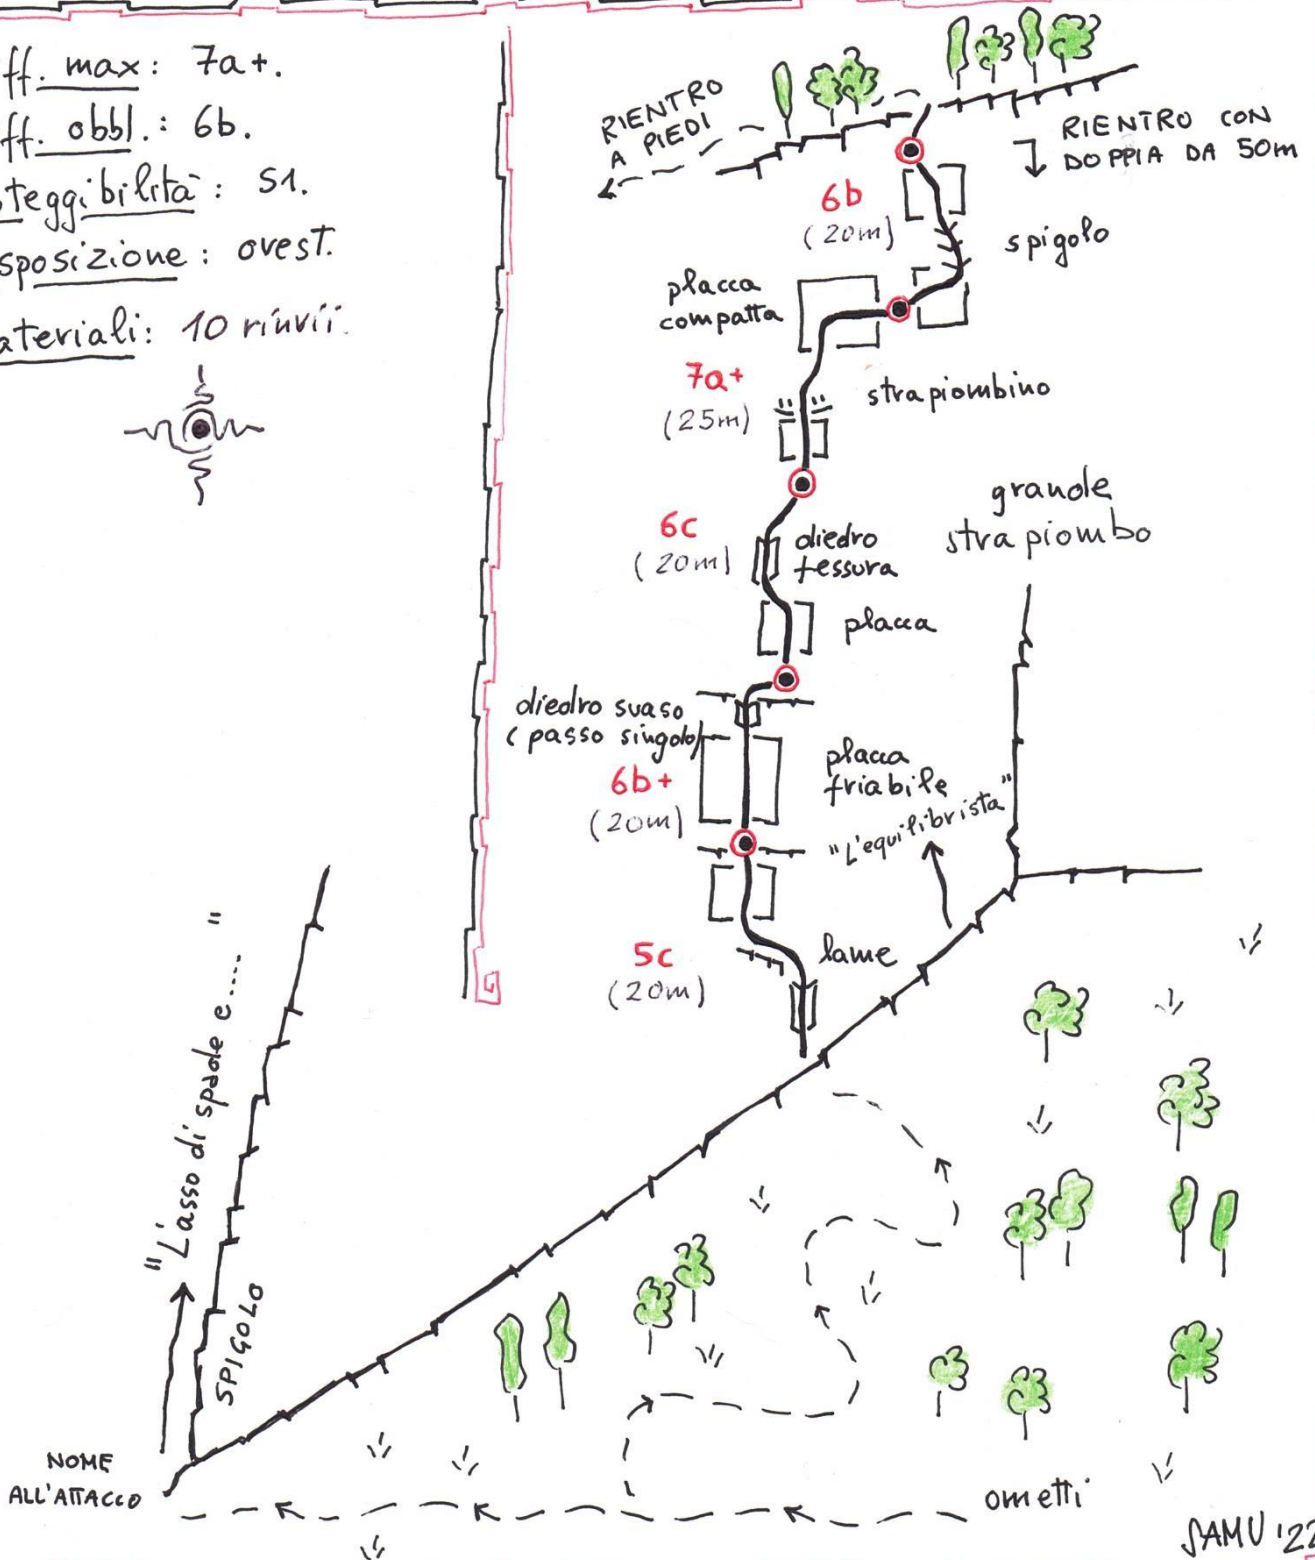 ff. max: 7a+.
ff. obbl.: 6b.
teggibilità: S1.
sposizione: ovest.
ateriali: 10 rinvii.
RIENTRO
A PIEDI
RIENTRO CON
DOPPIA DA 50m
6b
(20m)
spigolo
placca
compatta
7a+
(25m)
strapiombino
grande
strapiombo
6c
(20m)
diedro
fessura
placca
diedro svaso
(passo singolo)
6b+
(20m)
placca
friabile
"L'equilibrista"
5c
(20m)
lame
"L'asso di spade e....."
SPIGOLO
NOME
ALL'ATTACCO
ometti
SAMU '22